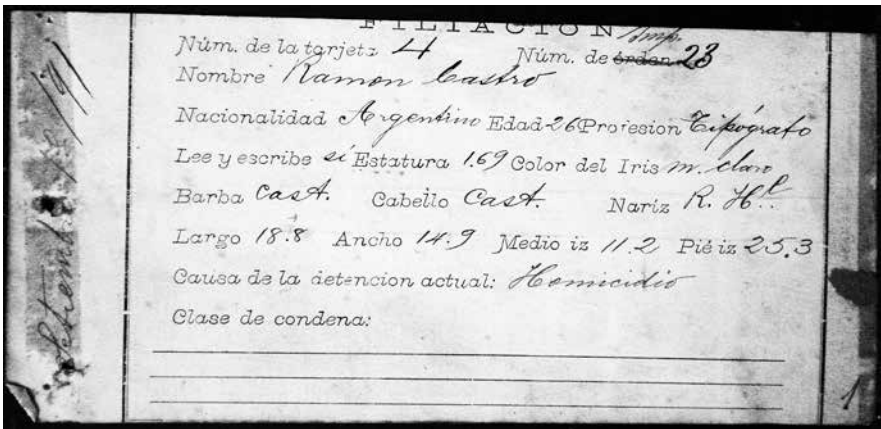 FILIACION
Núm. de la tarjeta 4 Núm. de orden 23
Nombre Ramon Castro
Nacionalidad Argentino Edad 26 Profesion Tipógrafo
Lee y escribe si Estatura 1.69 Color del Iris m. claro
Barba Cast. Cabello Cast. Nariz R. Hl.
Largo 18.8 Ancho 14.9 Medio iz 11.2 Pié iz 25.3
Causa de la detencion actual: Homicidio
Clase de condena:
1